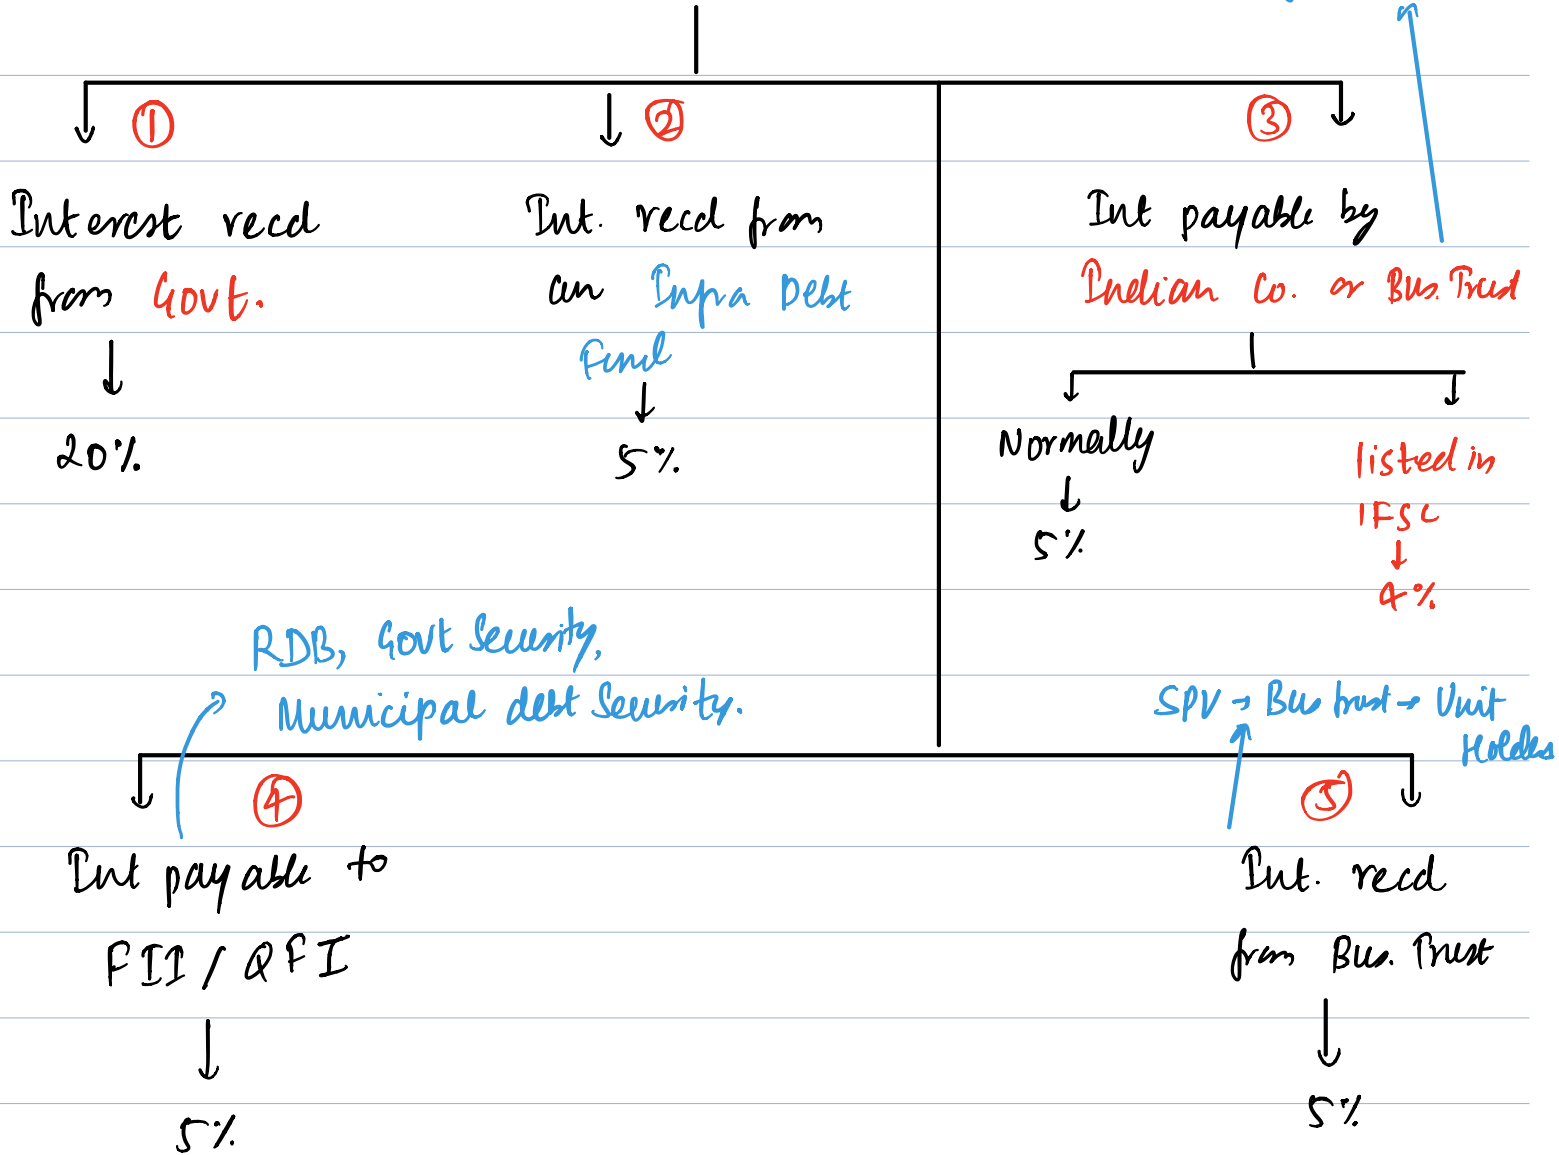 ①
②
③
Interest recd
from Govt.
20%
Int. recd from
an Infra Debt
Fund
5%
Int payable by
Indian Co. or Bus. Trust
Normally
5%
listed in
IFSC
4%
RDB, Govt Security,
Municipal debt Security.
SPV → Bus trust → Unit
Holders
④
⑤
Int payable to
FII / QFI
5%
Int. recd
from Bus. Trust
5%